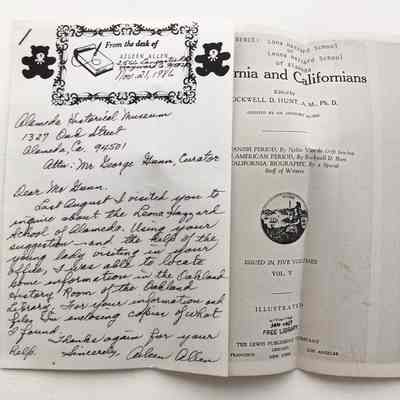 From the desk of
AILEEN ALLEN
Nov. 21, 1986
Alameda Historical Museum
1327 Oak Street
Alameda, Ca. 94501
Attn: Mr George Gunn, Curator
Dear Mr Gunn.
Last August I visited you to
inquire about the Leona Hazzard
School of Alameda. Using your
suggestion - and the help of the
young lady visiting in your
office, I was able to locate
some information in the Oakland
History Room of the Oakland
Library. For your information and
files I'm enclosing copies of what
I found.
Thanks again for your
help. Sincerely, Aileen Allen
Leona Hazzard School
of Alameda
rnia and Californians
Edited by
OCKWELL D. HUNT, A. M., Ph. D.
ASSISTED BY AN ADVISORY BOARD
PANISH PERIOD, By Nellie Van de Grift Sanchez
AMERICAN PERIOD, By Rockwell D. Hunt
CALIFORNIA BIOGRAPHY, By a Special
Staff of Writers
ISSUED IN FIVE VOLUMES
VOL. V
ILLUSTRATED
JAN 1927
FREE LIBRARY
THE LEWIS PUBLISHING COMPANY
CHICAGO
FRANCISCO
NEW YORK
LOS ANGELES